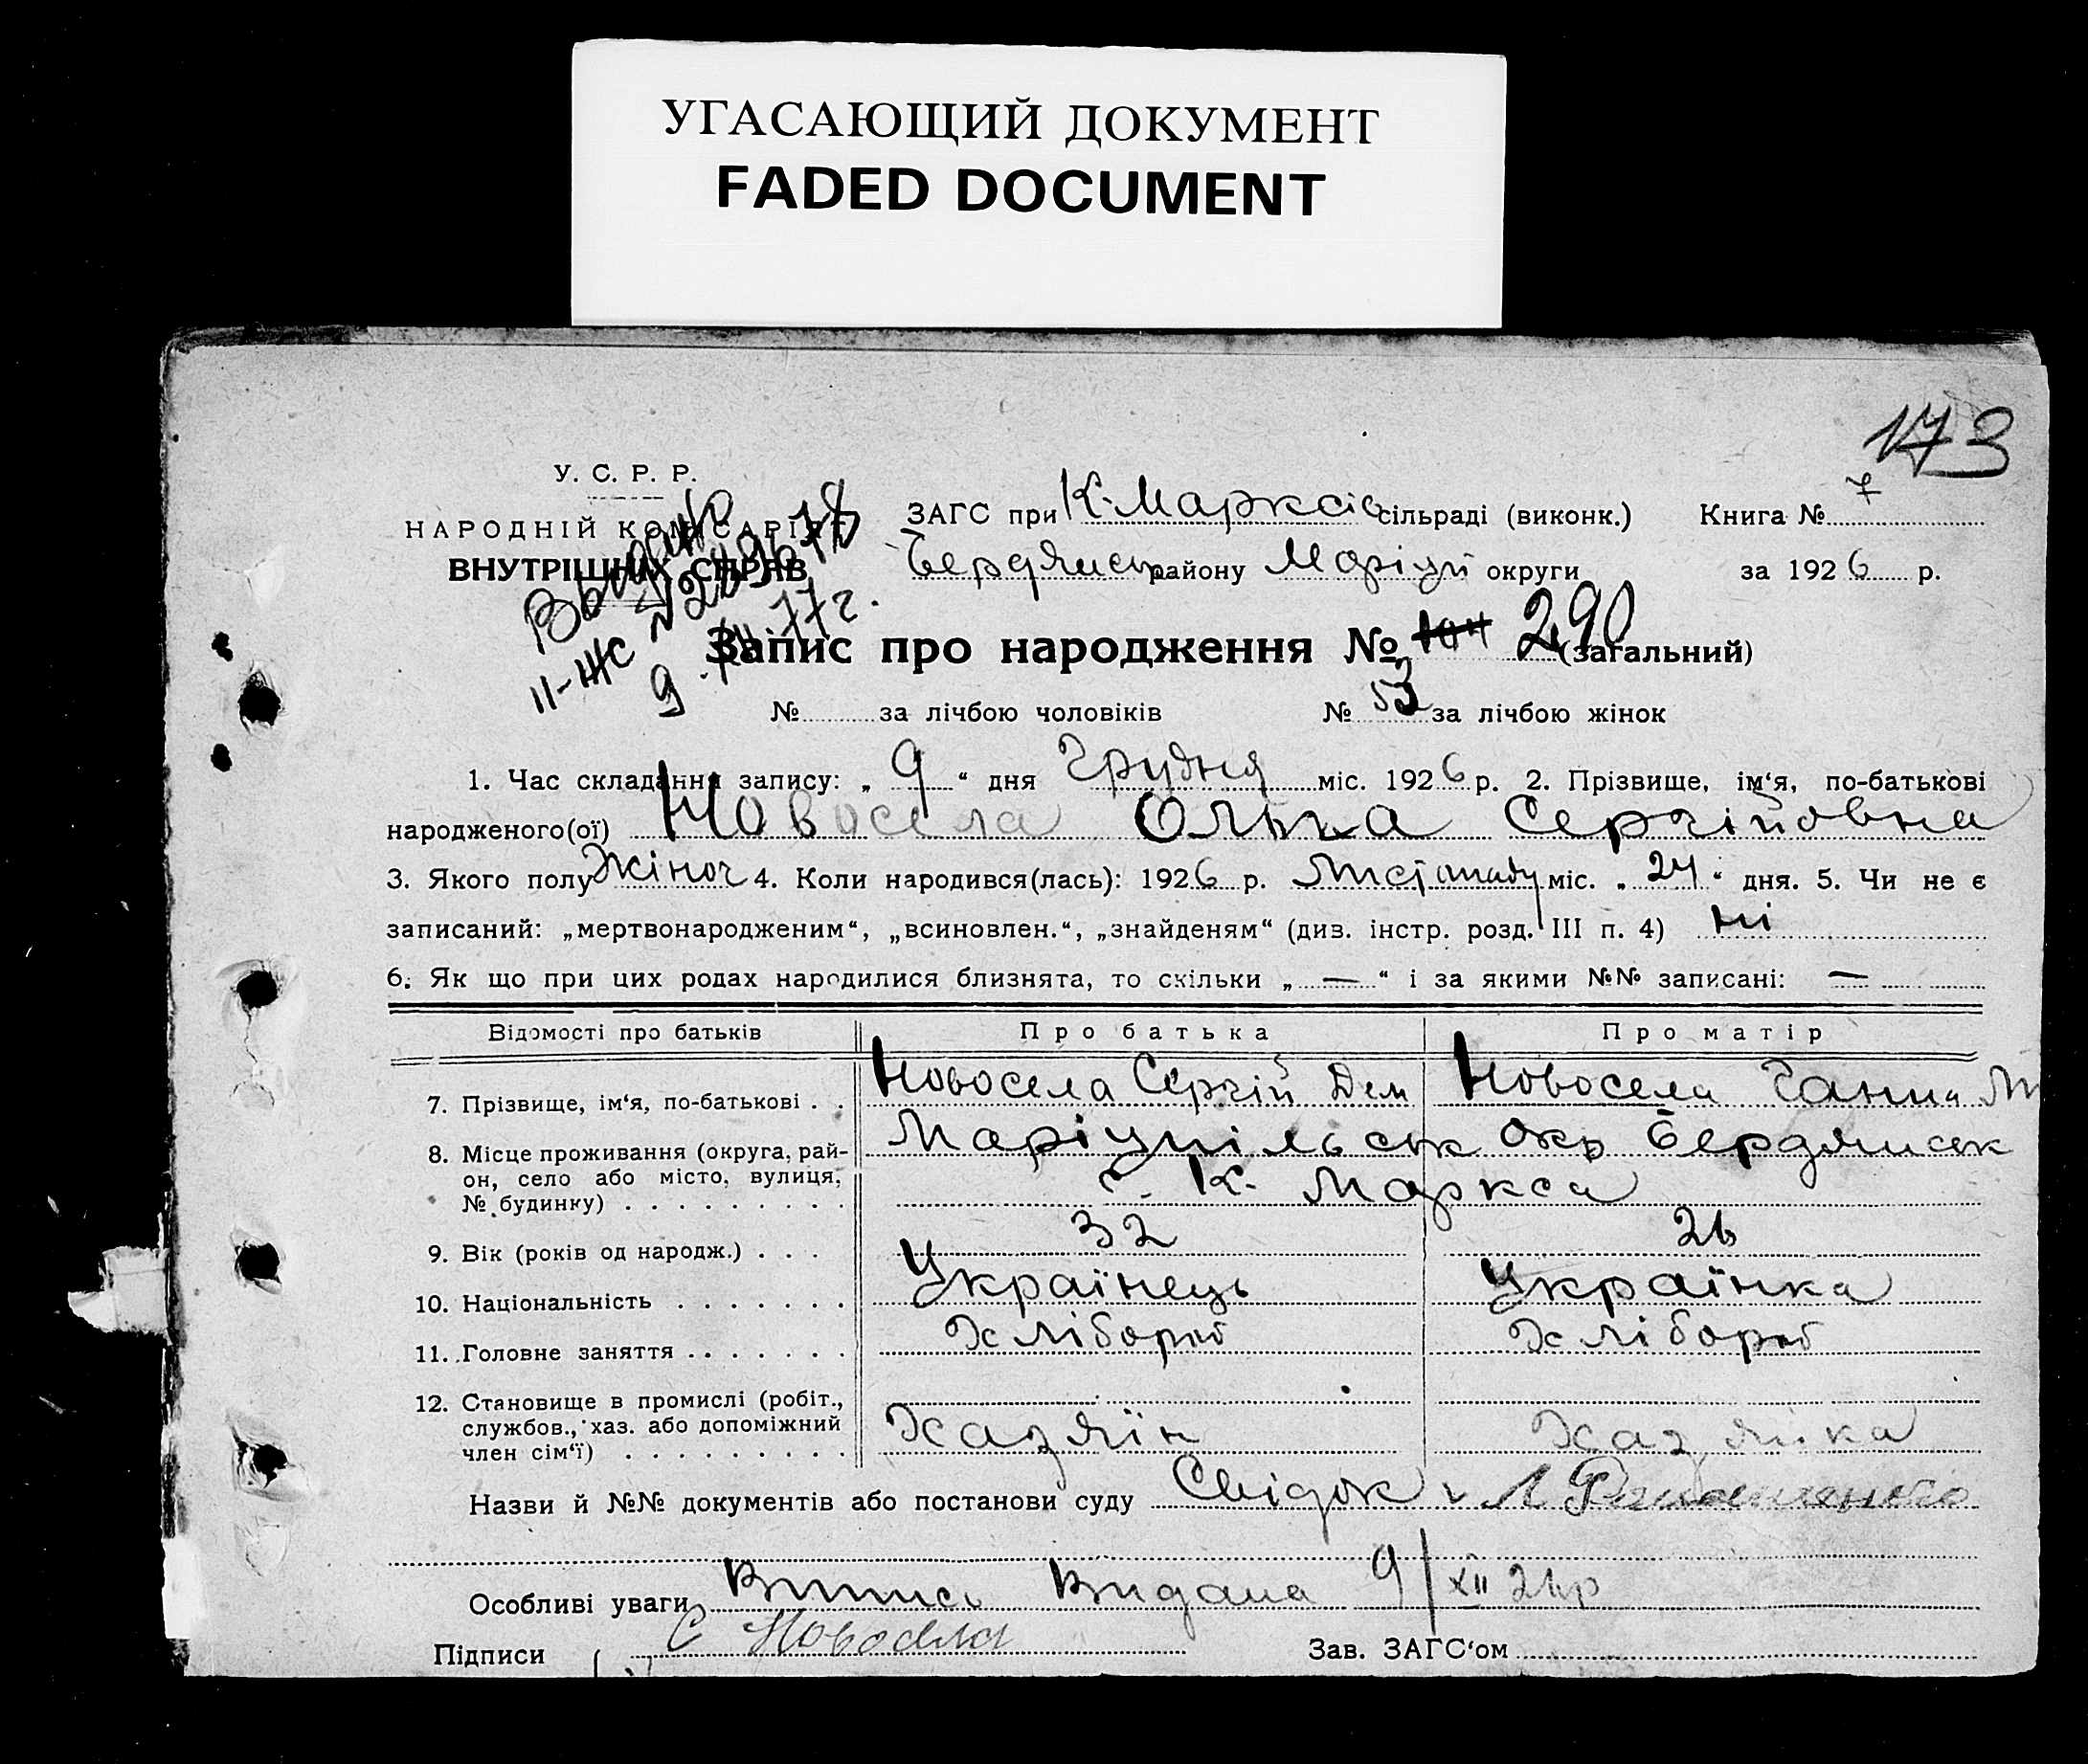 УГАСАЮЩИЙ ДОКУМЕНТ
FADED DOCUMENT
173
У. С. Р. Р.
НАРОДНІЙ КОМІСАРІЯТ
ВНУТРІШНІХ СПРАВ
ЗАГС при К. Марксів сільраді (виконк.) Книга № 7
Бердянськ району Маріуп округи за 1926 р.
II-ЖС №
9. 77 г.
Запис про народження № 104 290 (загальний)
№ за лічбою чоловіків № 53 за лічбою жінок
1. Час складання запису: „ 9 “ дня Грудня міс. 1926 р. 2. Прізвище, ім‘я, по-батькові
народженого(ої) Новосела Олька Сергійовна
3. Якого полу Жіноч 4. Коли народився(лась): 1926 р. Листопаду міс. „ 24 “ дня. 5. Чи не є
записаний: „мертвонародженим“, „всиновлен.“, „знайденям“ (див. інстр. розд. III п. 4) ні
6. Як що при цих родах народилися близнята, то скільки „ — “ і за якими №№ записані: —
Відомості про батьків Про батька Про матір
7. Прізвище, ім‘я, по-батькові . . Новосела Сергій Дем Новосела Ганна М
8. Місце проживання (округа, рай-
он, село або місто, вулиця,
№ будинку) . . . . . . . . . Маріупільськ окр Бердянськ
с. К. Маркса
9. Вік (років од народж.) . . . 32 26
10. Національність . . . . . . . Українець Українка
11. Головне заняття . . . . . . . Хлібороб Хлібороб
12. Становище в промислі (робіт.,
службов., хаз. або допоміжний
член сім‘ї) . . . . . . . . . Хазяїн Хазяйка
Назви й №№ документів або постанови суду Свідок
Особливі уваги Випись Видана 9/XII 26р
Підписи С Новосела Зав. ЗАГС‘ом